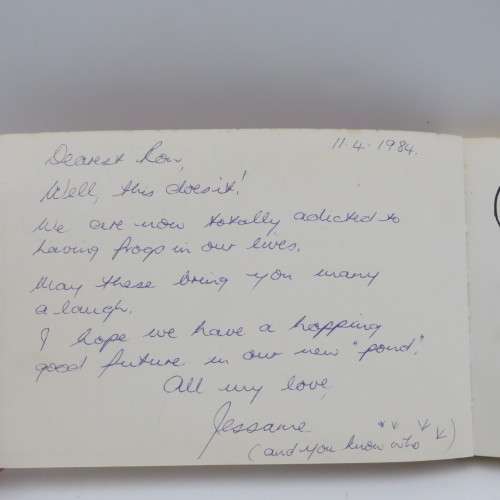 11.4.1984.
Dearest Ron,
Well, this does it!
We are now totally adicted to
having frogs in our lives.
May these bring you many
a laugh.
I hope we have a hopping
good future in our new "pond".
All my love,
Jessame
(and you know who )